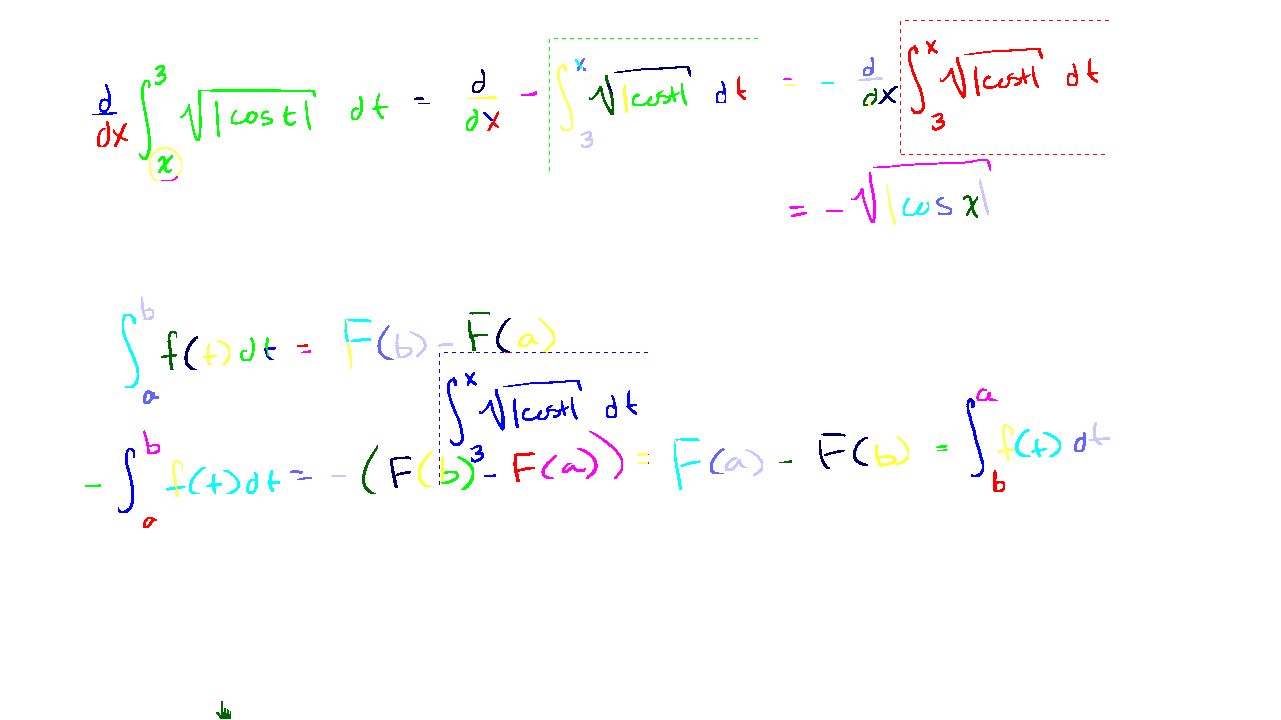 d/dx ∫_x^3 √|cos t| dt = d/dx - ∫_3^x √|cost| dt = - d/dx ∫_3^x √|cost| dt
= -√|cos x|
∫_a^b f(t) dt = F(b) - F(a)
∫_3^x √|cost| dt
- ∫_a^b f(t) dt = -(F(b) - F(a)) = F(a) - F(b) = ∫_b^a f(t) dt